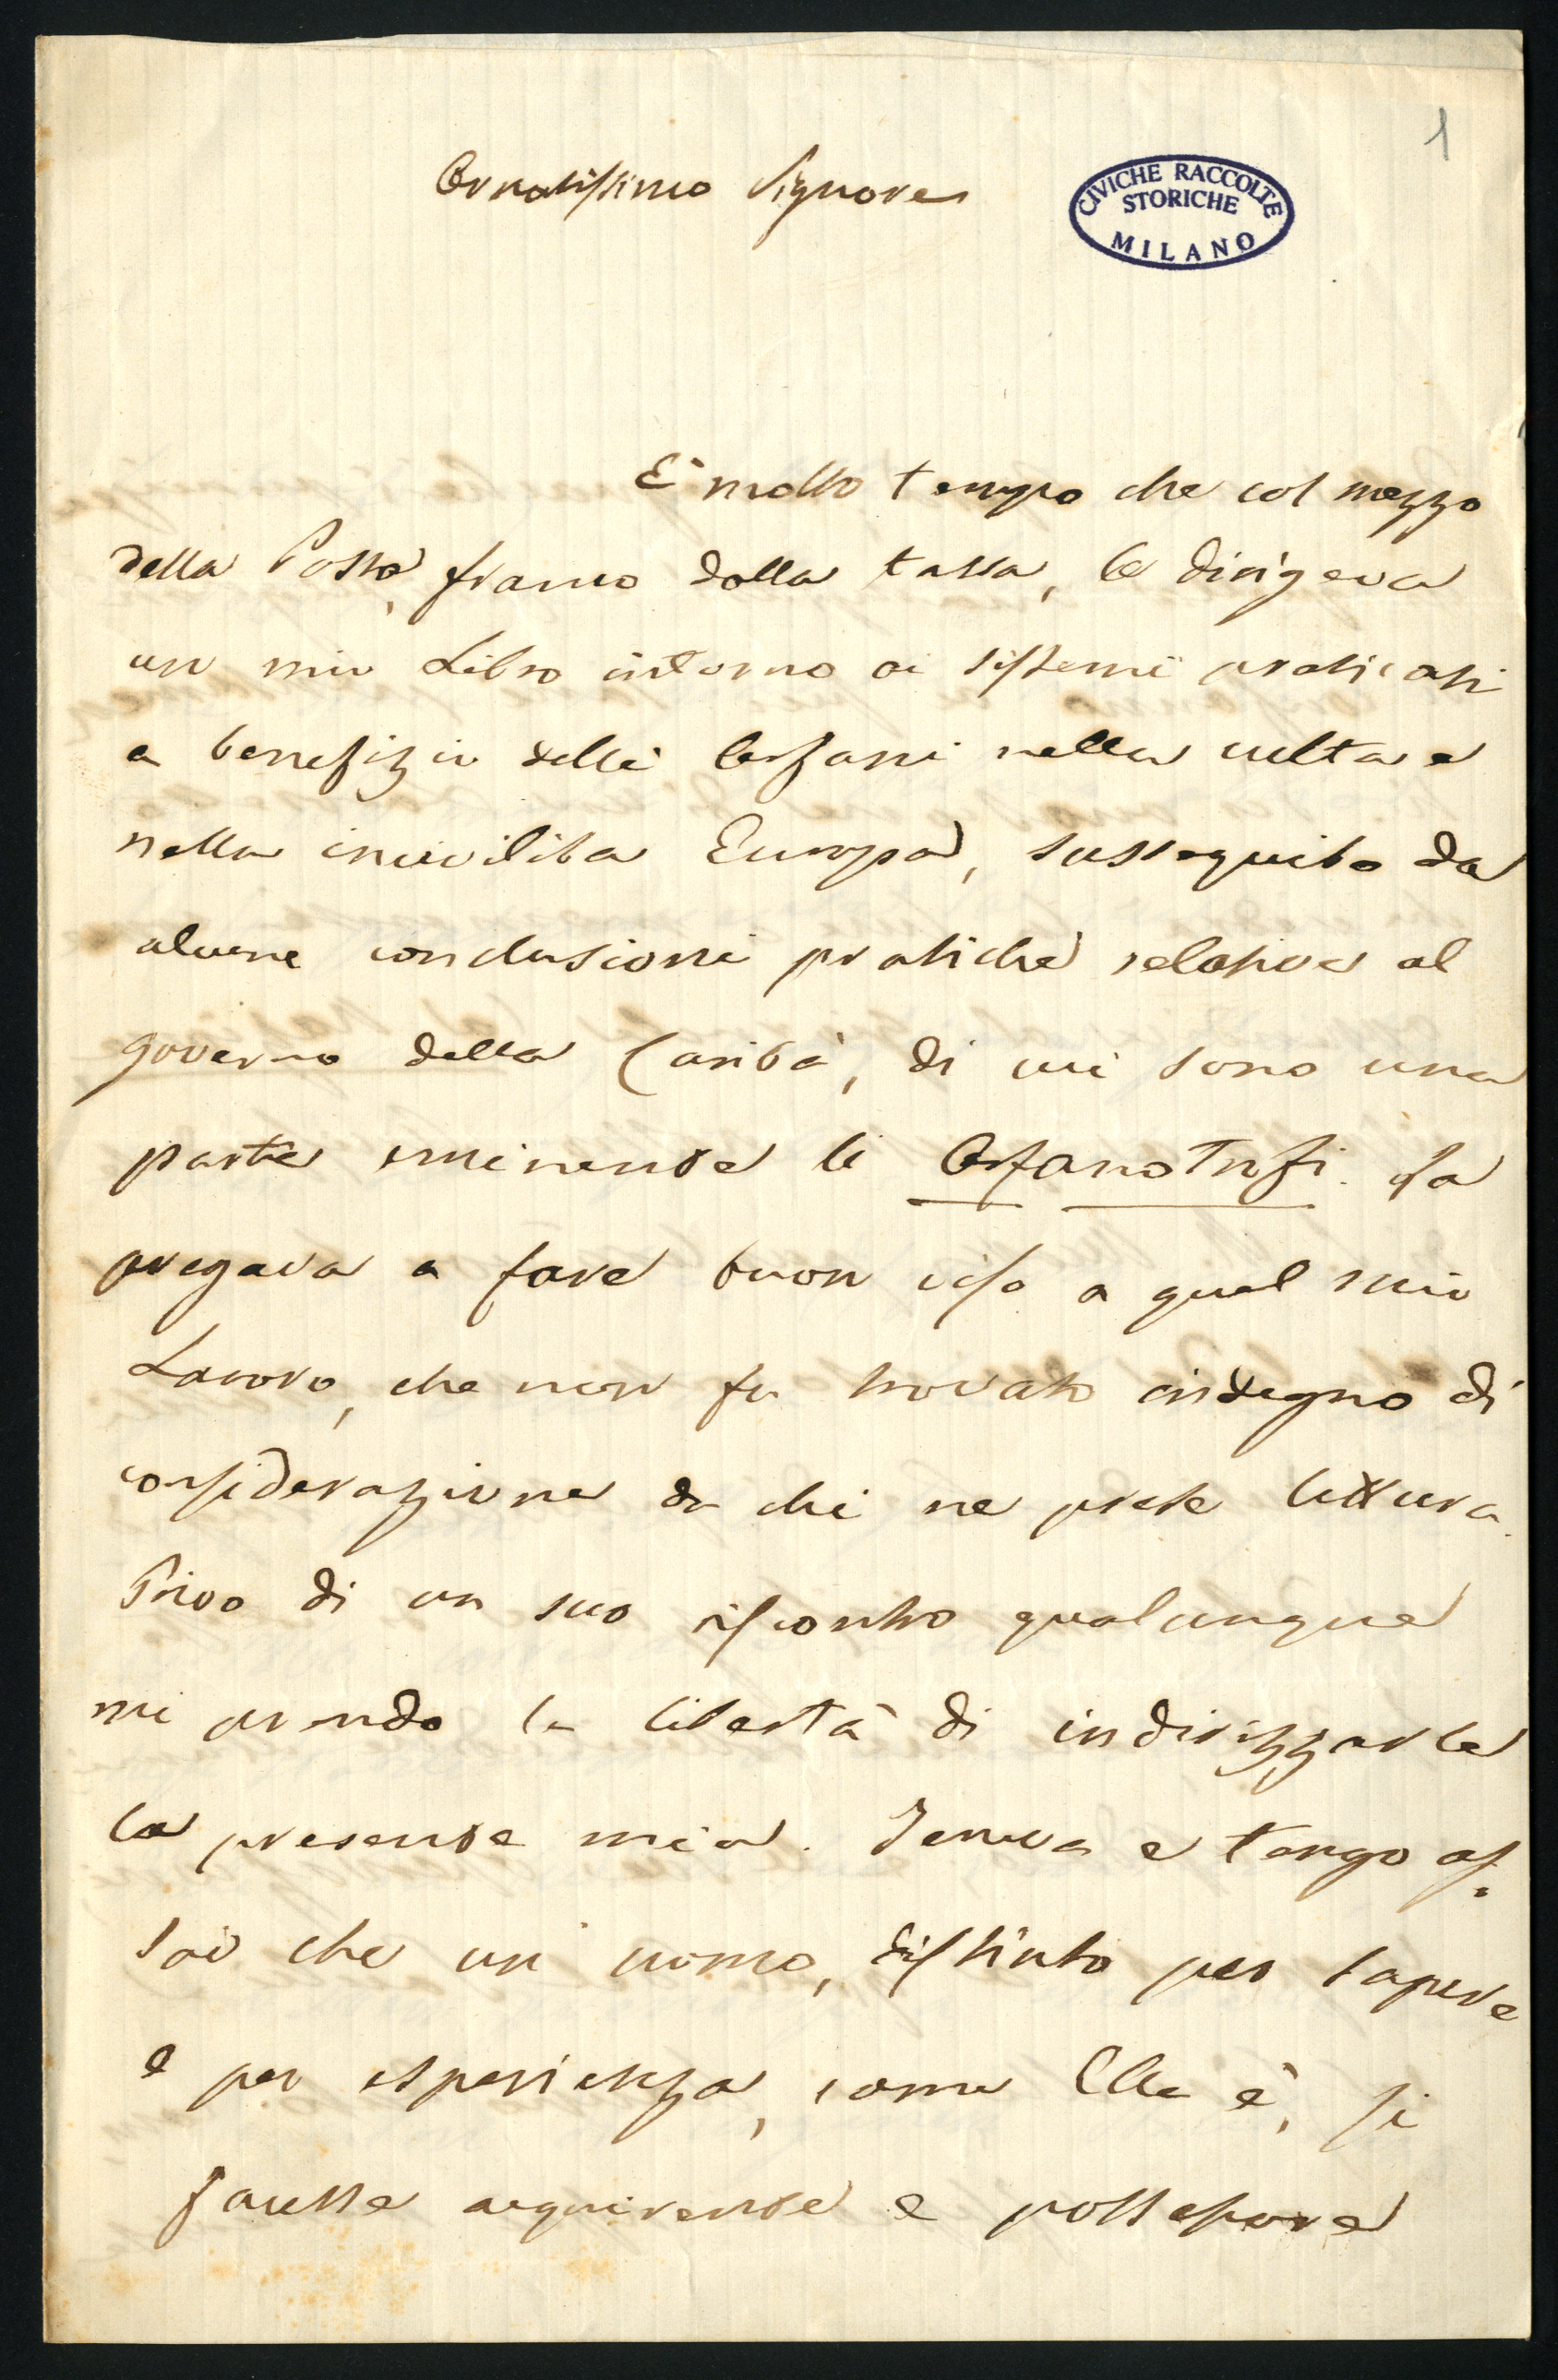 1
Ornatissimo Signore
CIVICHE RACCOLTE
STORICHE
MILANO
È molto tempo che col mezzo
della Posta, franco dalla tassa, le dirigeva
un mio Libro intorno ai sistemi praticati
a benefizio delli Orfani nella culta e
nella incivilita Europa, susseguito da
alcune conclusioni pratiche relative al
governo della Carità, di cui sono una
parte eminente li Orfanotrofi. La
pregava a fare buon viso a quel mio
Lavoro, che non fu trovato indegno di
considerazione da chi ne prese lettura.
Privo di un suo riscontro qualunque
mi prendo la libertà di indirizzarle
la presente mia. Teneva e tengo as=
sai che un uomo, distinto per sapere
e per esperienza, come Ella è, si
facesse acquirente e possessore